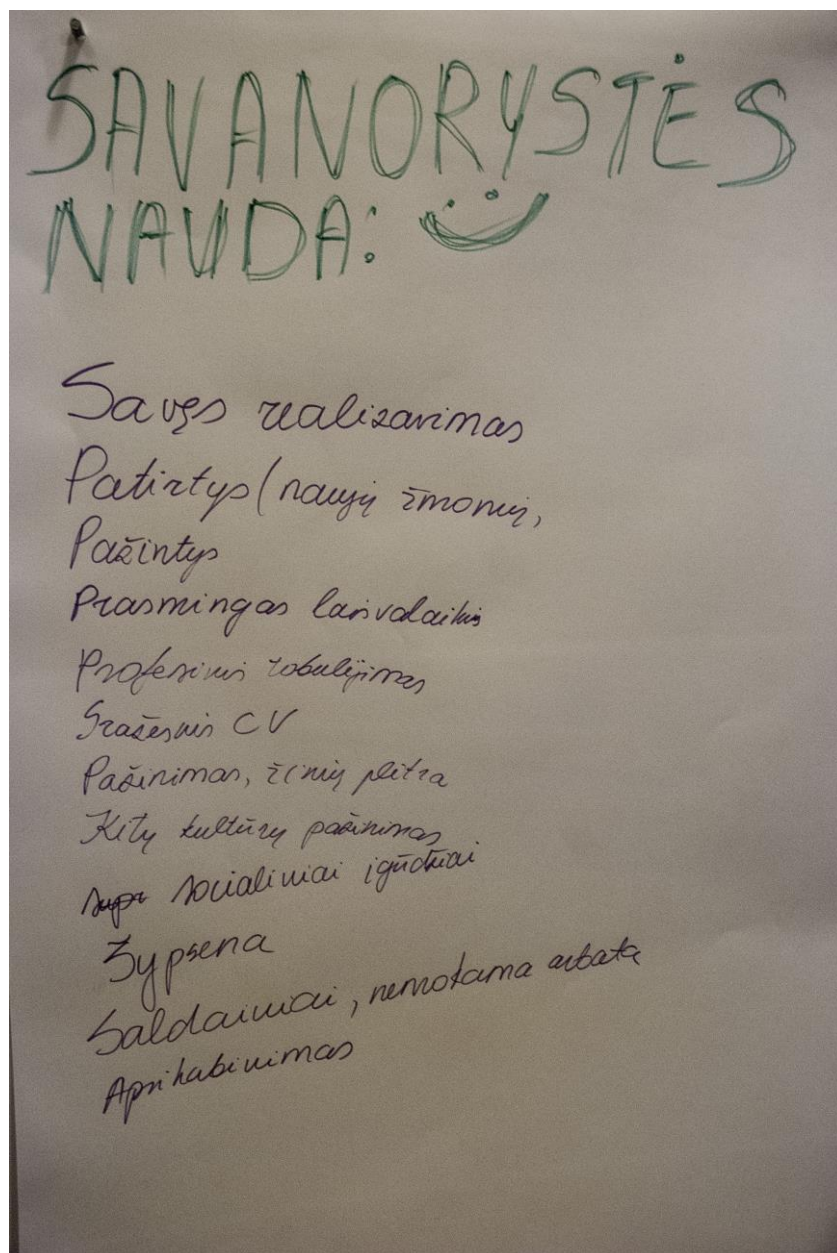 SAVANORYSTĖS
NAUDA:
Savęs realizavimas
Patirtys (naujų žmonių,
Pažintys
Prasmingas laisvalaikis
Profesinis tobulėjimas
Gražesnis CV
Pažinimas, žinių plėtra
Kitų kultūrų pažinimas
socialiniai įgūdžiai
Šypsena
Saldainiai, nemokama arbata
Apsikabinimas